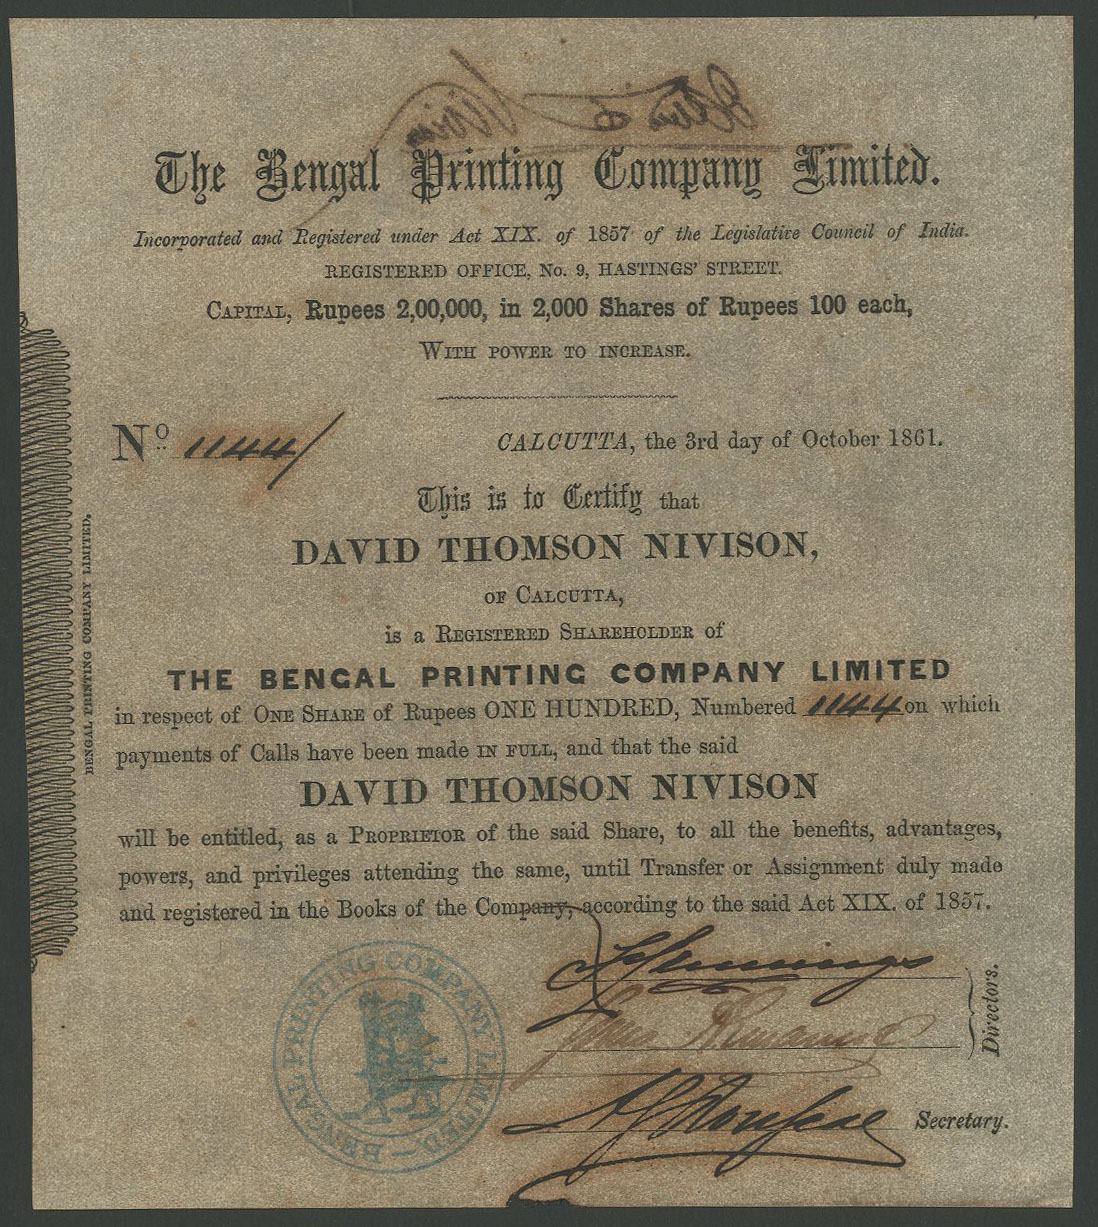 The Bengal Printing Company Limited.
Incorporated and Registered under Act XIX. of 1857 of the Legislative Council of India.
REGISTERED OFFICE, No. 9, HASTINGS' STREET.
CAPITAL, Rupees 2,00,000, in 2,000 Shares of Rupees 100 each,
WITH POWER TO INCREASE.
No. 1144/
CALCUTTA, the 3rd day of October 1861.
This is to Certify that
DAVID THOMSON NIVISON,
OF CALCUTTA,
is a REGISTERED SHAREHOLDER of
THE BENGAL PRINTING COMPANY LIMITED
in respect of ONE SHARE of Rupees ONE HUNDRED, Numbered 1144 on which
payments of Calls have been made IN FULL, and that the said
DAVID THOMSON NIVISON
will be entitled, as a PROPRIETOR of the said Share, to all the benefits, advantages,
powers, and privileges attending the same, until Transfer or Assignment duly made
and registered in the Books of the Company, according to the said Act XIX. of 1857.
Jennings
Directors.
Secretary.
BENGAL PRINTING COMPANY LIMITED.
BENGAL PRINTING COMPANY LIMITED.